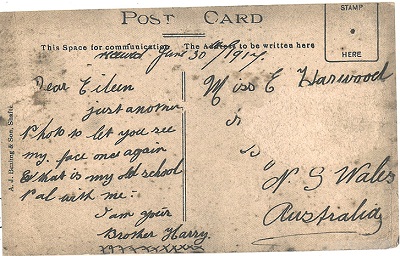 POST CARD
STAMP
HERE
This Space for communication The Address to be written here
Received June 30th 1917.
Dear Eileen
just another
Photo to let you see
my face once again
& that is my old school
Pal with me.
I am your
Brother Harry.
xxxxxxxxxxx
Miss E Harwood
N. S Wales
Australia
A. J. Benling & Son, Shafts.